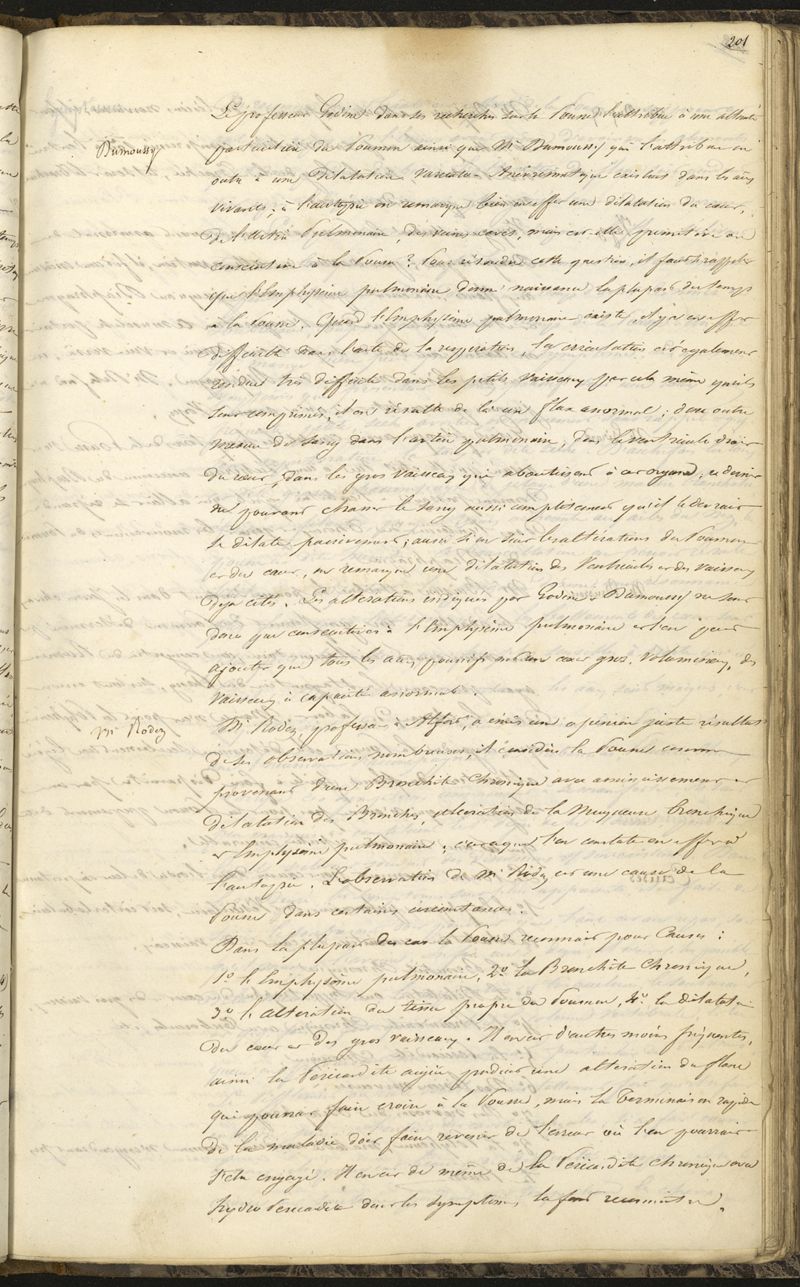 201
Le professeur Godine dans ses recherches sur la Pousse l'attribue à une altération
Dumoussy
particulière du Poumon ainsi que Mr Dumoussy qui l'attribue en
outre à une Dilatation Vasculaire Anévrismatique existant dans les aux
vivants ; à l'autopsie on remarque bien en effet une dilatation du cœur,
de l'Artère Pulmonaire, des veines caves, mais est-elle primitive ou
consécutive à la Pousse ? Pour résoudre cette question, il faut se rappeler
que l'Emphysème pulmonaire donne naissance la plupart du temps
à la Pousse. Quand l'Emphysème pulmonaire existe, il y a en effet
difficulté dans l'acte de la respiration, la circulation est également
rendue très difficile dans les petits vaisseaux par cela même qu'ils
sont comprimés, il en résulte de là un flux anormal ; donc outre
mesure de sang dans l'artère pulmonaire, dans le ventricule droit
du cœur, dans les gros vaisseaux qui aboutissent à cet organe, ce dernier
ne pouvant chasser le sang aussi complètement qu'il le devrait
se dilate passivement ; aussi si on suit les altérations du Poumon
et du cœur, on remarque une dilatation des Ventricules et des vaisseaux
déjà cités. Les altérations indiquées par Godine & Dumoussy ne sont
donc que consécutives à l'Emphysème pulmonaire et l'on peut
ajouter que tous les aux poussifs ont un cœur gros, volumineux, des
vaisseaux à capacité anormale.
Mr Rodez
Mr Rodez, professeur à Alfort, a émis une opinion juste résultat
de ses observations nombreuses, il considère la Pousse comme
provenant d'une Bronchite Chronique avec amincissement et
Dilatation des Bronches, ulcération de la Muqueuse bronchique
et Emphysème pulmonaire ; ce que l'on constate en effet à
l'autopsie. L'observation de Mr Rodez est une cause de la
Pousse dans certaines circonstances.
Dans la plupart des cas la Pousse reconnait pour Causes :
1o l'Emphysème pulmonaire, 2o la Bronchite Chronique,
3o l'altération du tissu propre du Poumon, 4o la dilatation
du cœur et des gros vaisseaux. Il en est d'autres moins fréquentes,
ainsi la Péricardite aigüe produit une altération du flanc
qui pourrait faire croire à la Pousse, mais la terminaison rapide
de la maladie doit faire revenir de l'erreur où l'on pourrait
s'être engagé. Il en est de même de la Péricardite chronique avec
hydro Péricardite dont les symptômes la font reconnaitre.